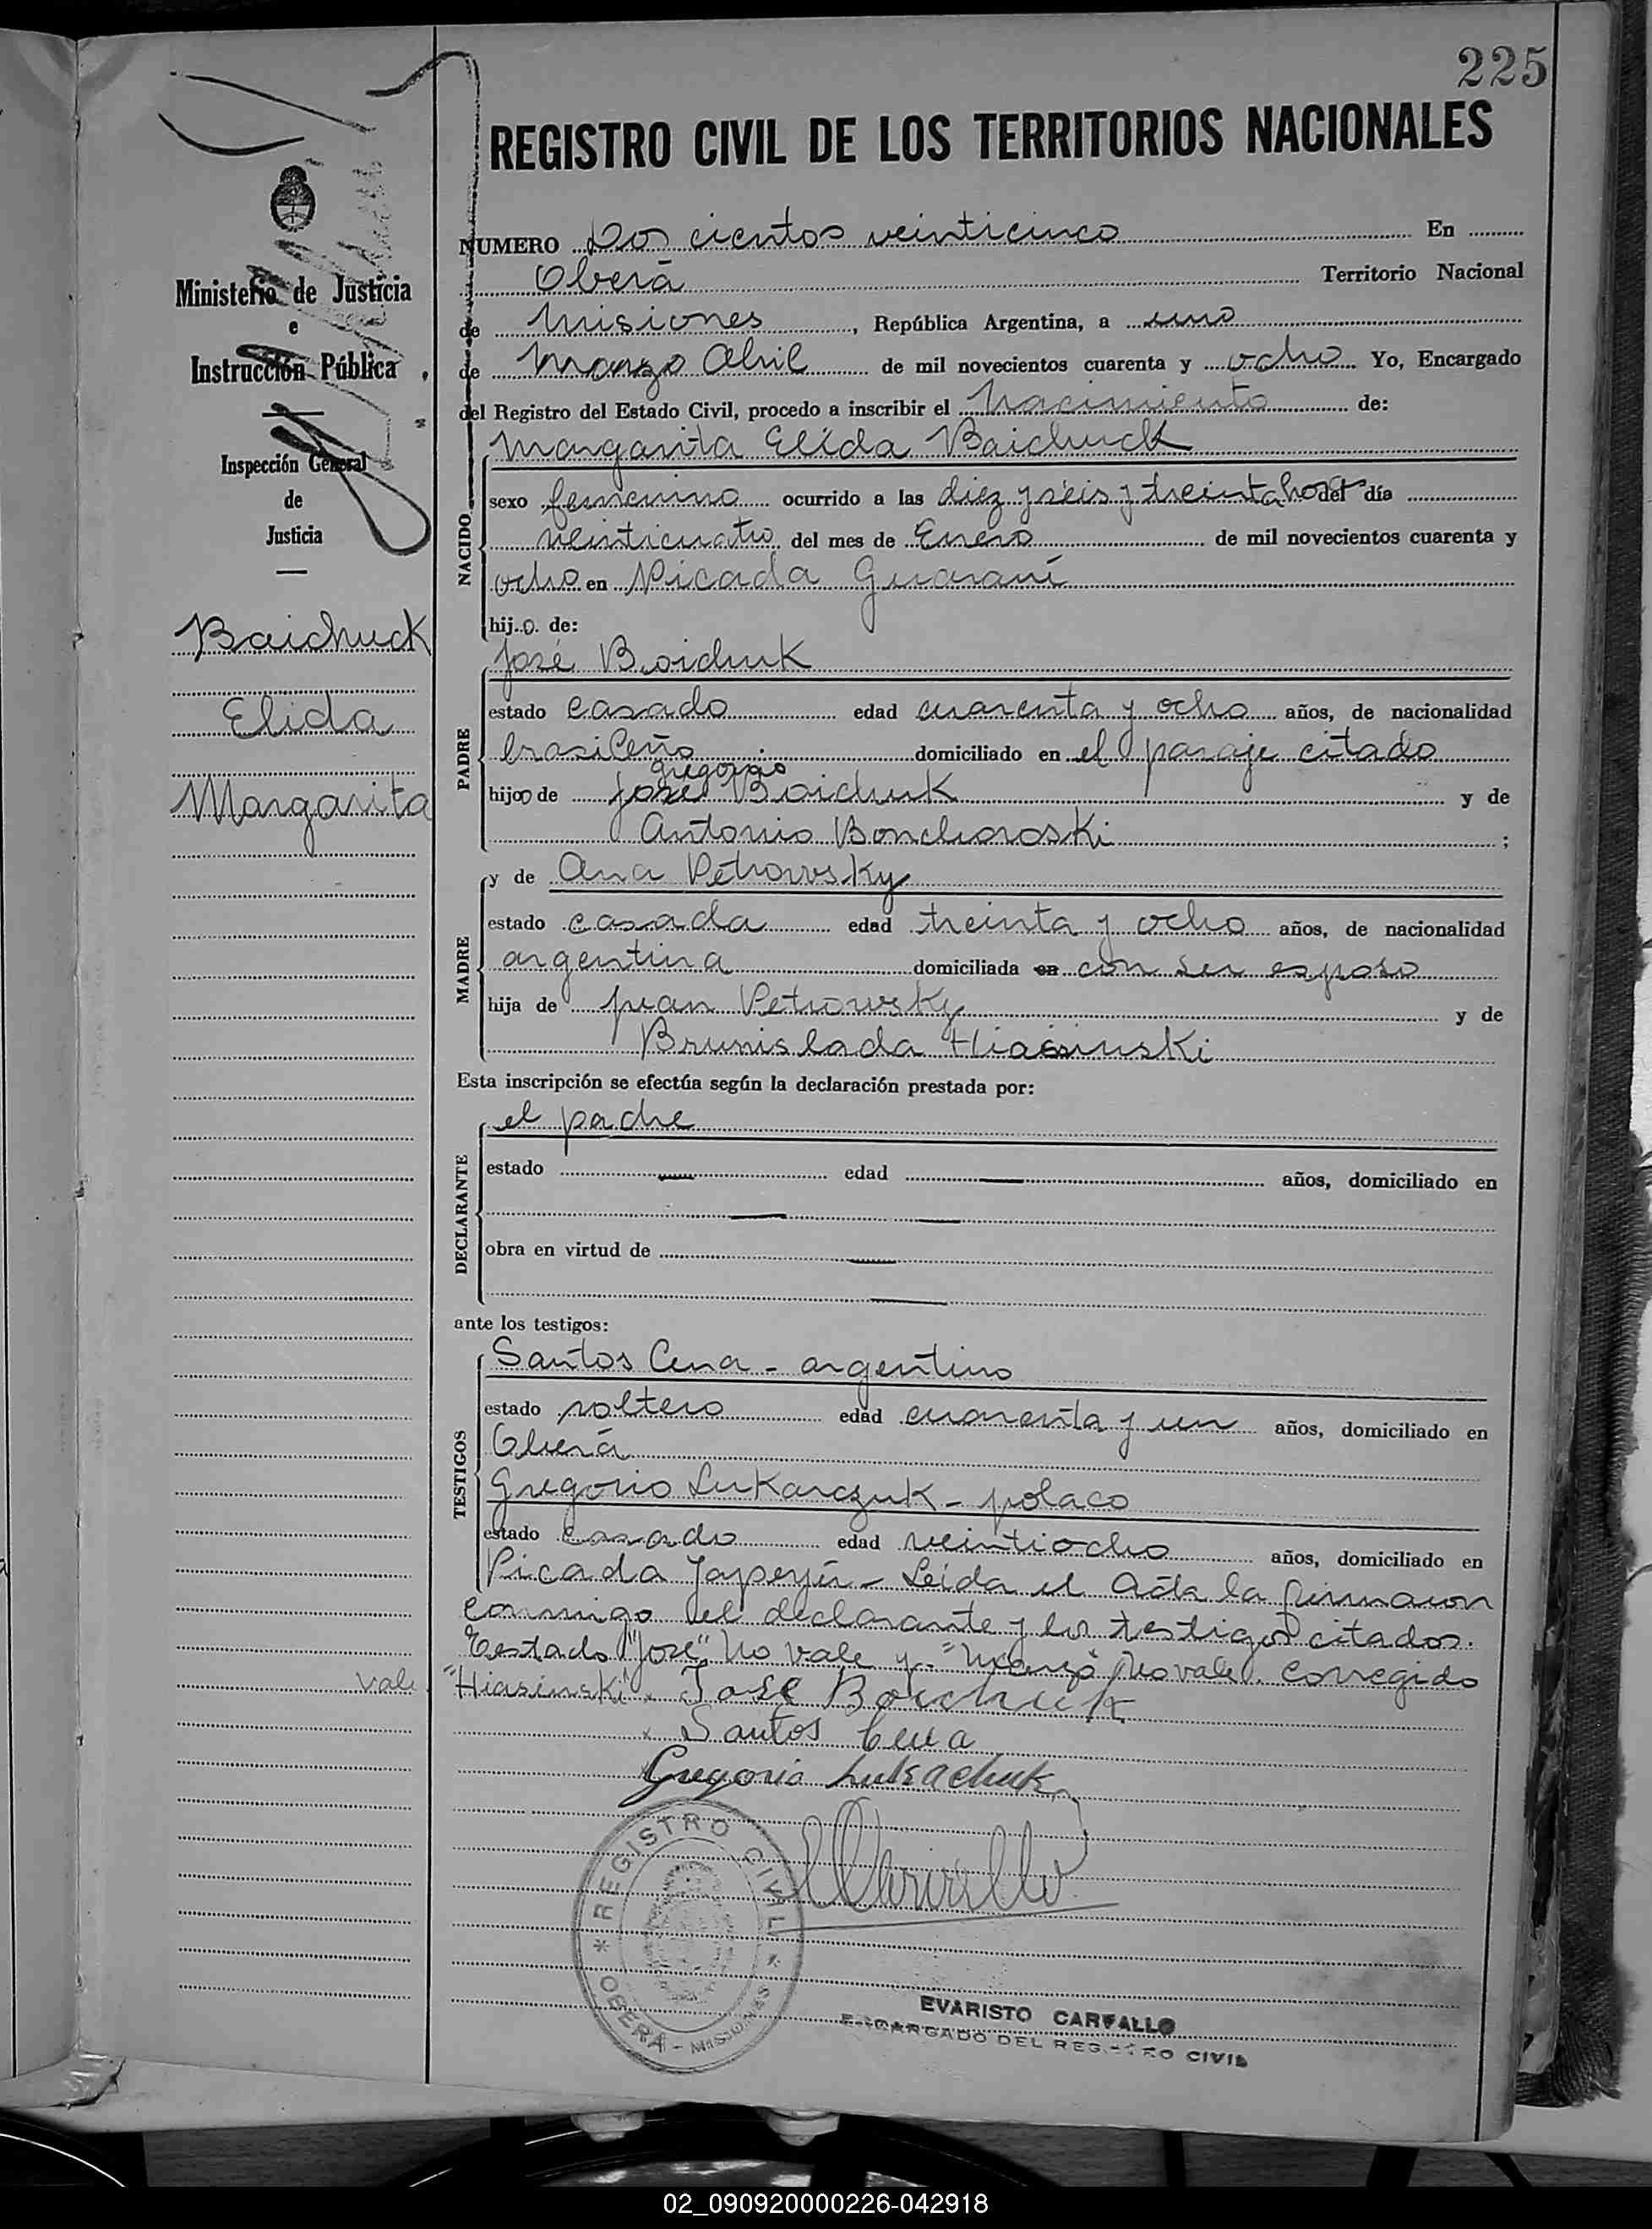 225
REGISTRO CIVIL DE LOS TERRITORIOS NACIONALES
Ministerio de Justicia
e
Instrucción Pública
Inspección General
de
Justicia
Baichuck
Elida
Margarita
NUMERO Dos cientos veinticinco En
Oberá Territorio Nacional
de Misiones, República Argentina, a uno
de Marzo Abril de mil novecientos cuarenta y ocho Yo, Encargado
del Registro del Estado Civil, procedo a inscribir el nacimiento de:
NACIDO
Margarita Elida Baichuck
sexo femenino ocurrido a las diez y séis y treinta hor del día
veinticuatro del mes de Enero de mil novecientos cuarenta y
ocho en Picada Guaraní
hij.o. de:
PADRE
José Boichuk
estado casado edad cuarenta y ocho años, de nacionalidad
brasileño domiciliado en el paraje citado
gregorio
hijo de José Boichuk y de
Antonio Bonchoroski ;
MADRE
y de Ana Petrowsky
estado casada edad treinta y ocho años, de nacionalidad
argentina domiciliada en con su esposo
hija de Juan Petrowsky y de
Brunislada Hiasinski
Esta inscripción se efectúa según la declaración prestada por:
DECLARANTE
el padre
estado edad años, domiciliado en
obra en virtud de
ante los testigos:
TESTIGOS
Santos Cena - argentino
estado soltero edad cuarenta y un años, domiciliado en
Oberá
Gregorio Lukarczuk - polaco
estado casado edad veintiocho años, domiciliado en
Picada Yapeyú - Leída el Acta la firmaron
conmigo el declarante y los testigos citados.
Testado "José" No vale y "Marzo" No vale. Corregido
"Hiasinski" Vale
José Boichuk
x Santos Cena
Gregorio Lukachuk
REGISTRO CIVIL
* OBERÁ - MISIONES *
EVARISTO CARVALLO
ENCARGADO DEL REGISTRO CIVIL
02_090920000226-042918